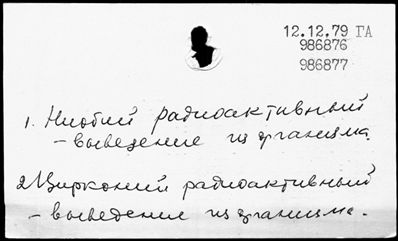 12.12.79 ГА
986876
986877
1. Ниобий радиоактивный
- выведение из организма.
2. Цирконий радиоактивный
- выведение из организма.